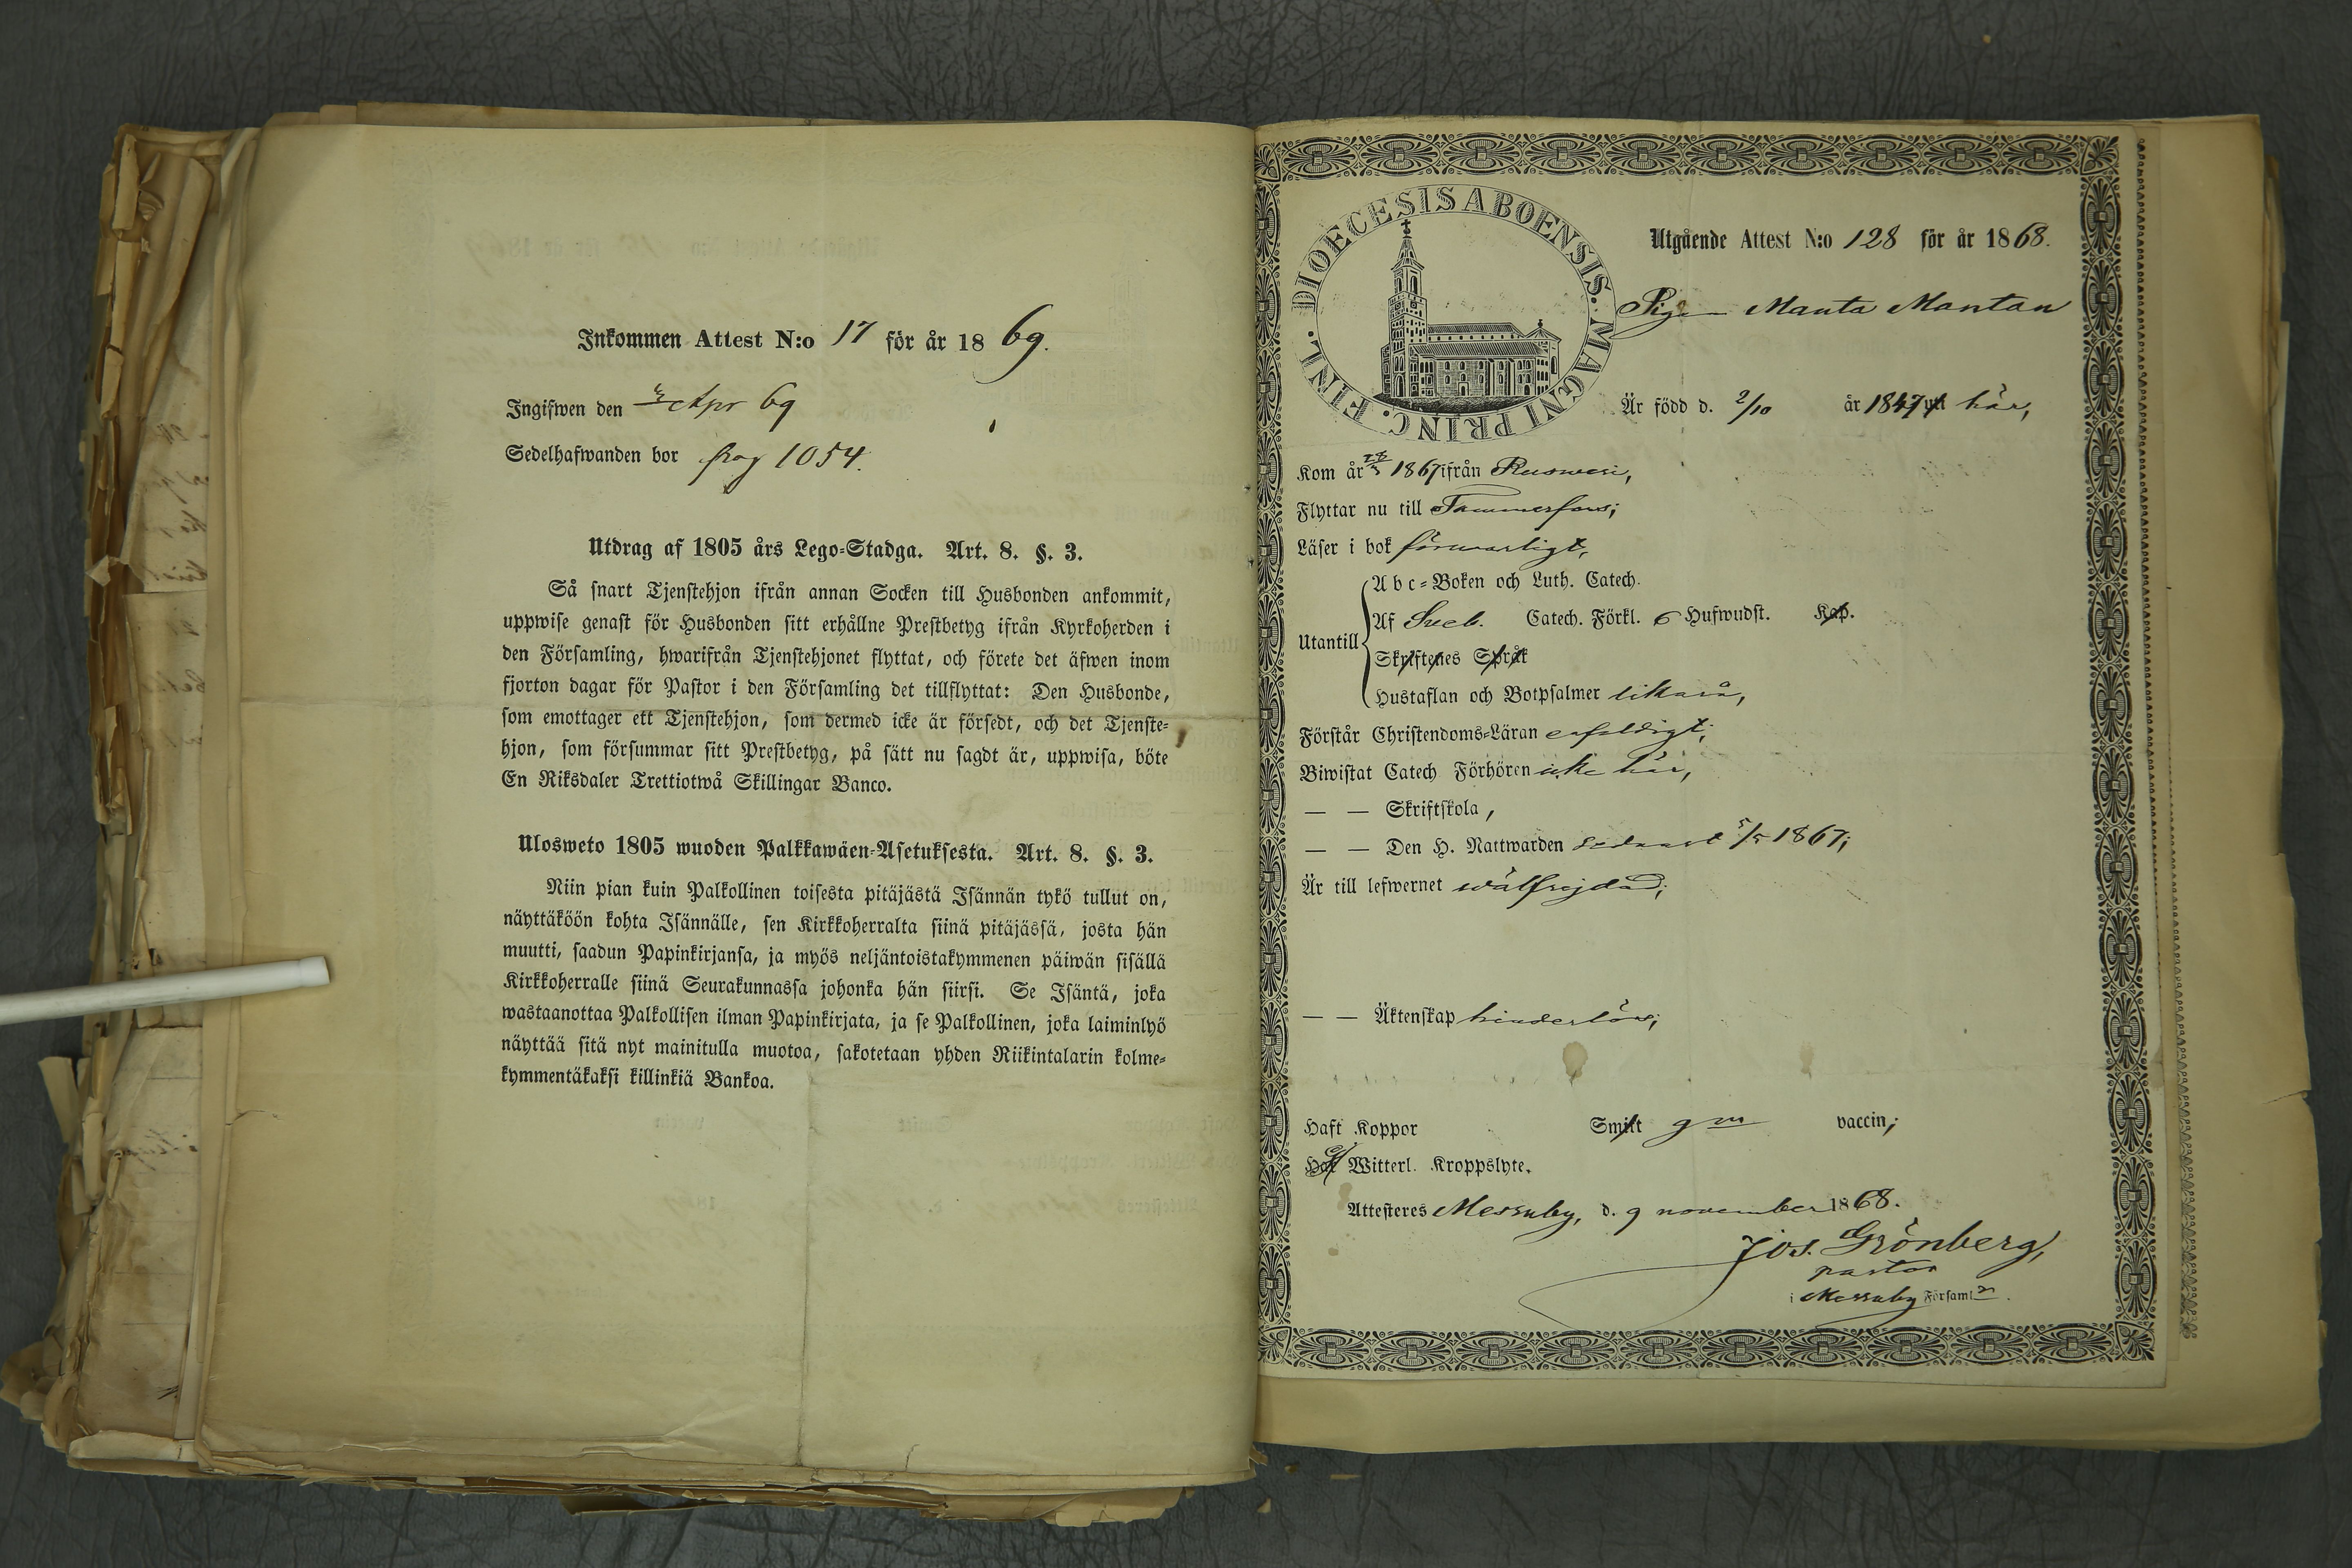 Inkommen Attest N:o 17 för år 18 69.
Ingifwen den 3 Apr 69
Sedelhafwanden bor pag 1054.
Utdrag af 1805 års Lego-Stadga. Art. 8. §. 3.
Så snart Tjenstehjon ifrån annan Socken till Husbonden ankommit,
uppwise genast för Husbonden sitt erhållne Prestbetyg ifrån Kyrkoherden i
den Församling, hwarifrån Tjenstehjonet flyttat, och förete det äfwen inom
fjorton dagar för Pastor i den Församling det tillflyttat: Den Husbonde,
som emottager ett Tjenstehjon, som dermed icke är försedt, och det Tjenste-
hjon, som försummar sitt Prestbetyg, på sätt nu sagdt är, uppwisa, böte
En Riksdaler Trettiotwå Skillingar Banco.
Ulosweto 1805 wuoden Palkkawäen-Asetuksesta. Art. 8. §. 3.
Niin pian kuin Palkollinen toisesta pitäjästä Isännän tykö tullut on,
näyttäköön kohta Isännälle, sen Kirkkoherralta siinä pitäjässä, josta hän
muutti, saadun Papinkirjansa, ja myös neljäntoistakymmenen päiwän sisällä
Kirkkoherralle siinä Seurakunnassa johonka hän siirsi. Se Isäntä, joka
wastaanottaa Palkollisen ilman Papinkirjata, ja se Palkollinen, joka laiminlyö
näyttää sitä nyt mainitulla muotoa, sakotetaan yhden Riikintalarin kolme-
kymmentäkaksi killinkiä Bankoa.
DIOECESIS ABOENSIS. MAGNI PRINC. FINL.
Utgående Attest N:o 128 för år 1868.
Pigan Manta Mantan
Är född d. 2/10 år 1847 här,
Kom år 1867 ifrån Ruowesi,
Flyttar nu till Tammerfors;
Läser i bok förswarligt,
Utantill
Abc-Boken och Luth. Catech.
Af Sveb. Catech. Förkl. 6 Hufwudst. Kap.
Skriftenes Språk
Hustaflan och Botpsalmer likaså,
Förstår Christendoms-Läran enfaldigt;
Biwistat Catech Förhören icke här,
— — Skriftskola,
— — Den H. Nattwarden sednast 5/5 1867;
Är till lefwernet wälfrejdad;
— — Äktenskap hinderlös;
Haft Koppor Smitt gm vaccin;
Haft Witterl. Kroppslyte.
Attesteres Messuby, d. 9 november 1868.
Jos. Grönberg,
pastor
i Messuby Församl.